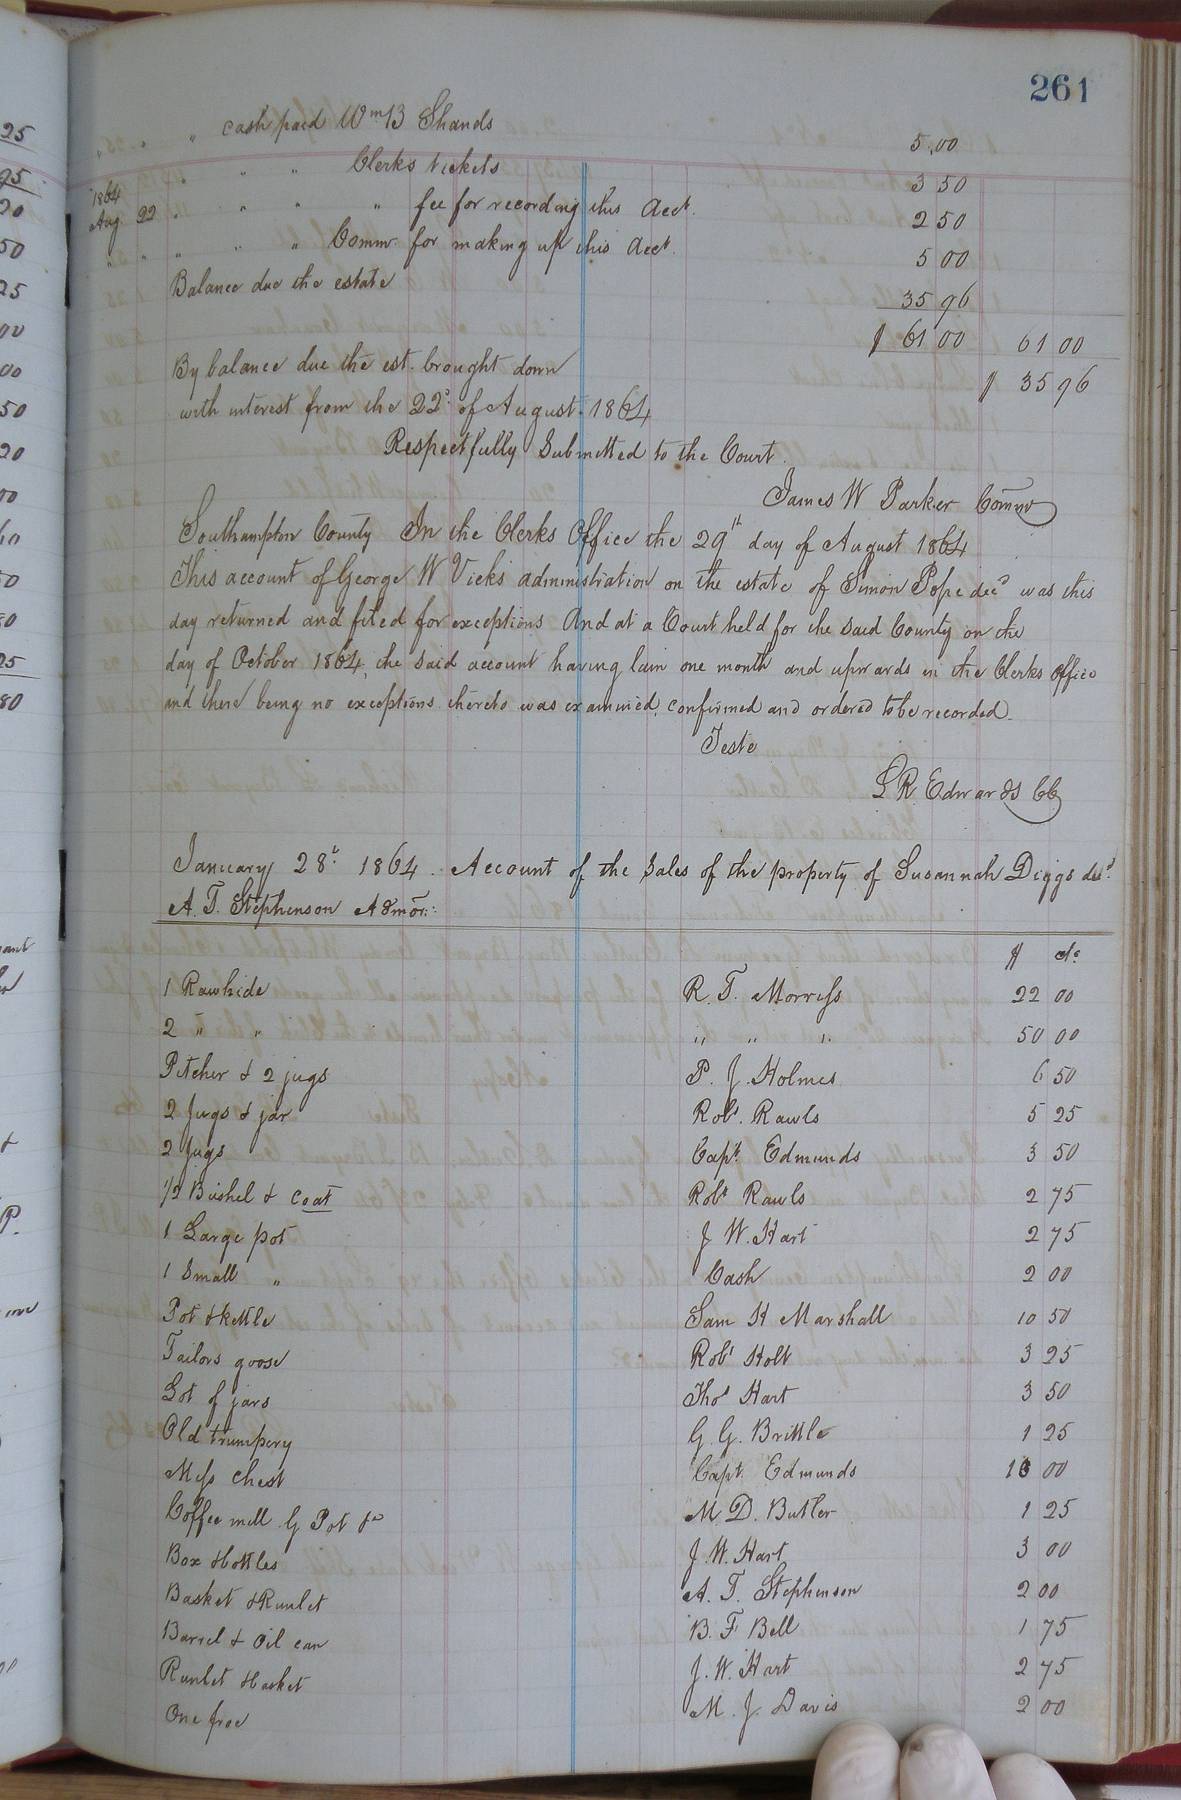 261
" cash paid Wm B Shands 5.00
" " " Clerks tickets 3 50
1864 Aug. 22 " " " " fee for recording this Acct. 2 50
" " " " " Commr for making up this Acct. 5 00
Balance due the estate 35 96
$ 61 00 61 00
By balance due the est. brought down $ 35 96
with interest from the 22d of August 1864
Respectfully Submitted to the Court.
James W Parker Commr
Southampton County In the Clerks Office the 29th day of August 1864
This account of George W Vicks administration on the estate of Simon Pope decd was this
day returned and filed for exceptions And at a Court held for the said County on the
day of October 1864, the said account having lain one month and upwards in the Clerks Office
and there being no exceptions thereto was examined, confirmed and ordered to be recorded.
Teste
L R Edwards CC
January 28t 1864. Account of the Sales of the property of Susannah Diggs decd.
A. T. Stephenson Admor:
$ cts
1 Rawhide R. T. Morriss 22 00
2 " " " " " 50 00
Pitcher & 2 jugs P. J. Holmes 6 50
2 Jugs & jar Robt. Rawls 5 25
2 Jugs Capt. Edmunds 3 50
1/2 Bushel & coat Robt Rawls 2 75
1 Large pot J W. Hart 2 75
1 Small " Cash 2 00
Pot & kettle Sam H Marshall 10 50
Tailors goose Robt Holt 3 25
Lot of jars Thos Hart 3 50
Old trumpery G. G. Brittle 1 25
Mess Chest Capt. Edmunds 10 00
Coffee mill G Pot &c M. D. Butler 1 25
Box & bottles J. W. Hart 3 00
Basket & Runlet A. T. Stephenson 2 00
Barrel & Oil can B. F Bell 1 75
Runlet & basket J. W. Hart 2 75
One froe M. J. Davis 2 00